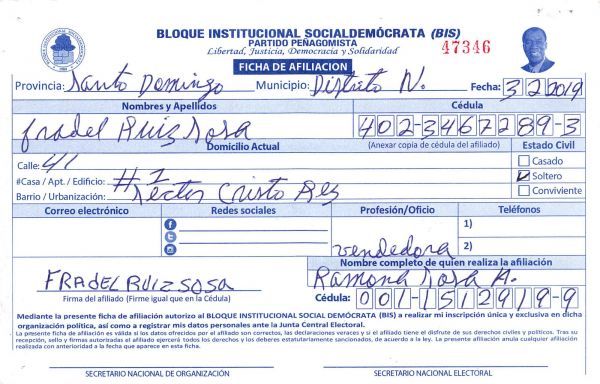 BLOQUE INSTITUCIONAL SOCIALDEMÓCRATA (BIS)
PARTIDO PEÑAGOMISTA
Libertad, Justicia, Democracia y Solidaridad
47346
FICHA DE AFILIACION
Provincia: Santo Domingo Municipio: Distrito N. Fecha: 3 2 2019
Nombres y Apellidos Cédula
fradel Ruiz Sosa 402-3467289-3
Domicilio Actual (Anexar copia de cédula del afiliado) Estado Civil
Calle: 41 Casado
#Casa / Apt. / Edificio: #1 Soltero
Barrio / Urbanización: Sector Cristo Rey Conviviente
Correo electrónico Redes sociales Profesión/Oficio Teléfonos
1)
vendedora 2)
Nombre completo de quien realiza la afiliación
FRADEL RUIZ SOSA Ramona Rosa A.
Firma del afiliado (Firme igual que en la Cédula) Cédula: 001-1512919-9
Mediante la presente ficha de afiliación autorizo al BLOQUE INSTITUCIONAL SOCIAL DEMÓCRATA (BIS) a realizar mi inscripción única y exclusiva en dicha
organización política, así como a registrar mis datos personales ante la Junta Central Electoral.
La presente ficha de afiliación es válida si los datos ofrecidos por el afiliado son correctos, las declaraciones veraces y si el afiliado tiene el disfrute de sus derechos civiles y políticos. Tras su
recepción, sello y firmas autorizadas el afiliado ejercerá todos los derechos y los deberes estatutariamente sancionados, de acuerdo a la ley. La presente afiliación anula cualquier afiliación
realizada con anterioridad a la fecha que aparece en esta ficha.
SECRETARIO NACIONAL DE ORGANIZACIÓN SECRETARIO NACIONAL ELECTORAL